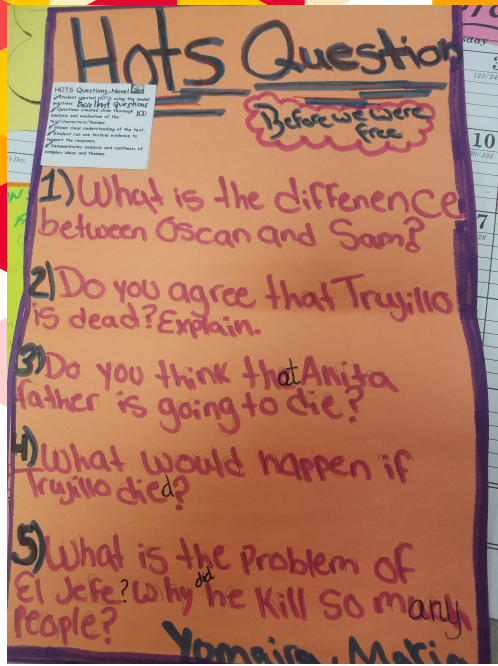 Hots Question
HOTS Questions-Novel
Student created HOTS using the model
questions Excellent questions
Questions created show thorough 100
analysis and evaluation of the
text/characters/themes.
Shows clear understanding of the text.
Student can use textual evidence to
support the response.
Demonstrates analysis and synthesis of
complex ideas and themes.
Before we were
free
1) What is the diffenence
between Oscan and Sam?
2) Do you agree that Trujillo
is dead? Explain.
3) Do you think that Anita
father is going to die?
4) What would happen if
Trujillo died?
5) What is the Problem of
El Jefe? Why did he Kill so many
People?
Yomaira, Maria
sday
10
7